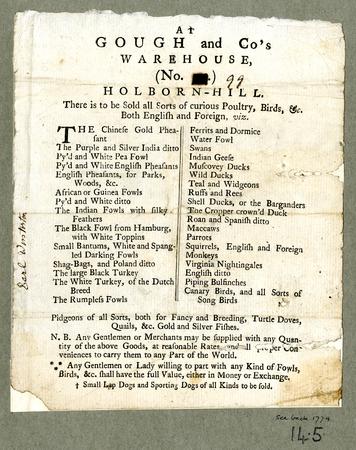 At
GOUGH and Co's
WAREHOUSE,
(No. .) 99
HOLBORN-HILL.
There is to be Sold all Sorts of curious Poultry, Birds, &c.
Both English and Foreign, viz.
THE Chinese Gold Phea-
sant
The Purple and Silver India ditto
Py'd and White Pea Fowl
Py'd and White English Pheasants
English Pheasants, for Parks,
Woods, &c.
African or Guinea Fowls
Py'd and White ditto
The Indian Fowls with silky
Feathers
The Black Fowl from Hamburg,
with White Toppins
Small Bantums, White and Spang-
led Darking Fowls
Shag-Bags, and Poland ditto
The large Black Turkey
The White Turkey, of the Dutch
Breed
The Rumpless Fowls
Ferrits and Dormice
Water Fowl
Swans
Indian Geese
Muscovey Ducks
Wild Ducks
Teal and Widgeons
Ruffs and Rees
Shell Ducks, or the Barganders
The Cropper crown'd Duck
Roan and Spanish ditto
Maccaws
Parrots
Squirrels, English and Foreign
Monkeys
Virginia Nightingales
English ditto
Piping Bulfinches
Canary Birds, and all Sorts of
Song Birds
Pidgeons of all Sorts, both for Fancy and Breeding, Turtle Doves,
Quails, &c. Gold and Silver Fishes.
N. B. Any Gentlemen or Merchants may be supplied with any Quan-
tity of the above Goods, at reasonable Rates, and all proper Con-
veniences to carry them to any Part of the World.
⁂ Any Gentlemen or Lady willing to part with any Kind of Fowls,
Birds, &c. shall have the full Value, either in Money or Exchange.
† Small Lap Dogs and Sporting Dogs of all Kinds to be sold.
See back 1774
145